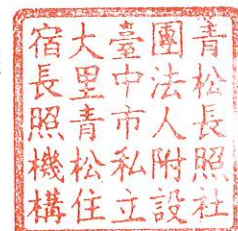 青松長照社
團法人附設
臺中市私立
大里青松住
宿長照機構